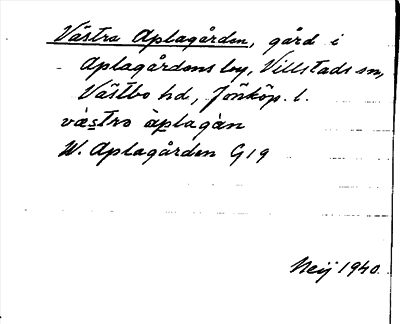 Västra Aplagården, gård i
Aplagårdens by, Villstads sn,
Västbo hd, Jönköp. l.
väs̱tro àpḻagàn
W. Aplagården G19
Neij 1940